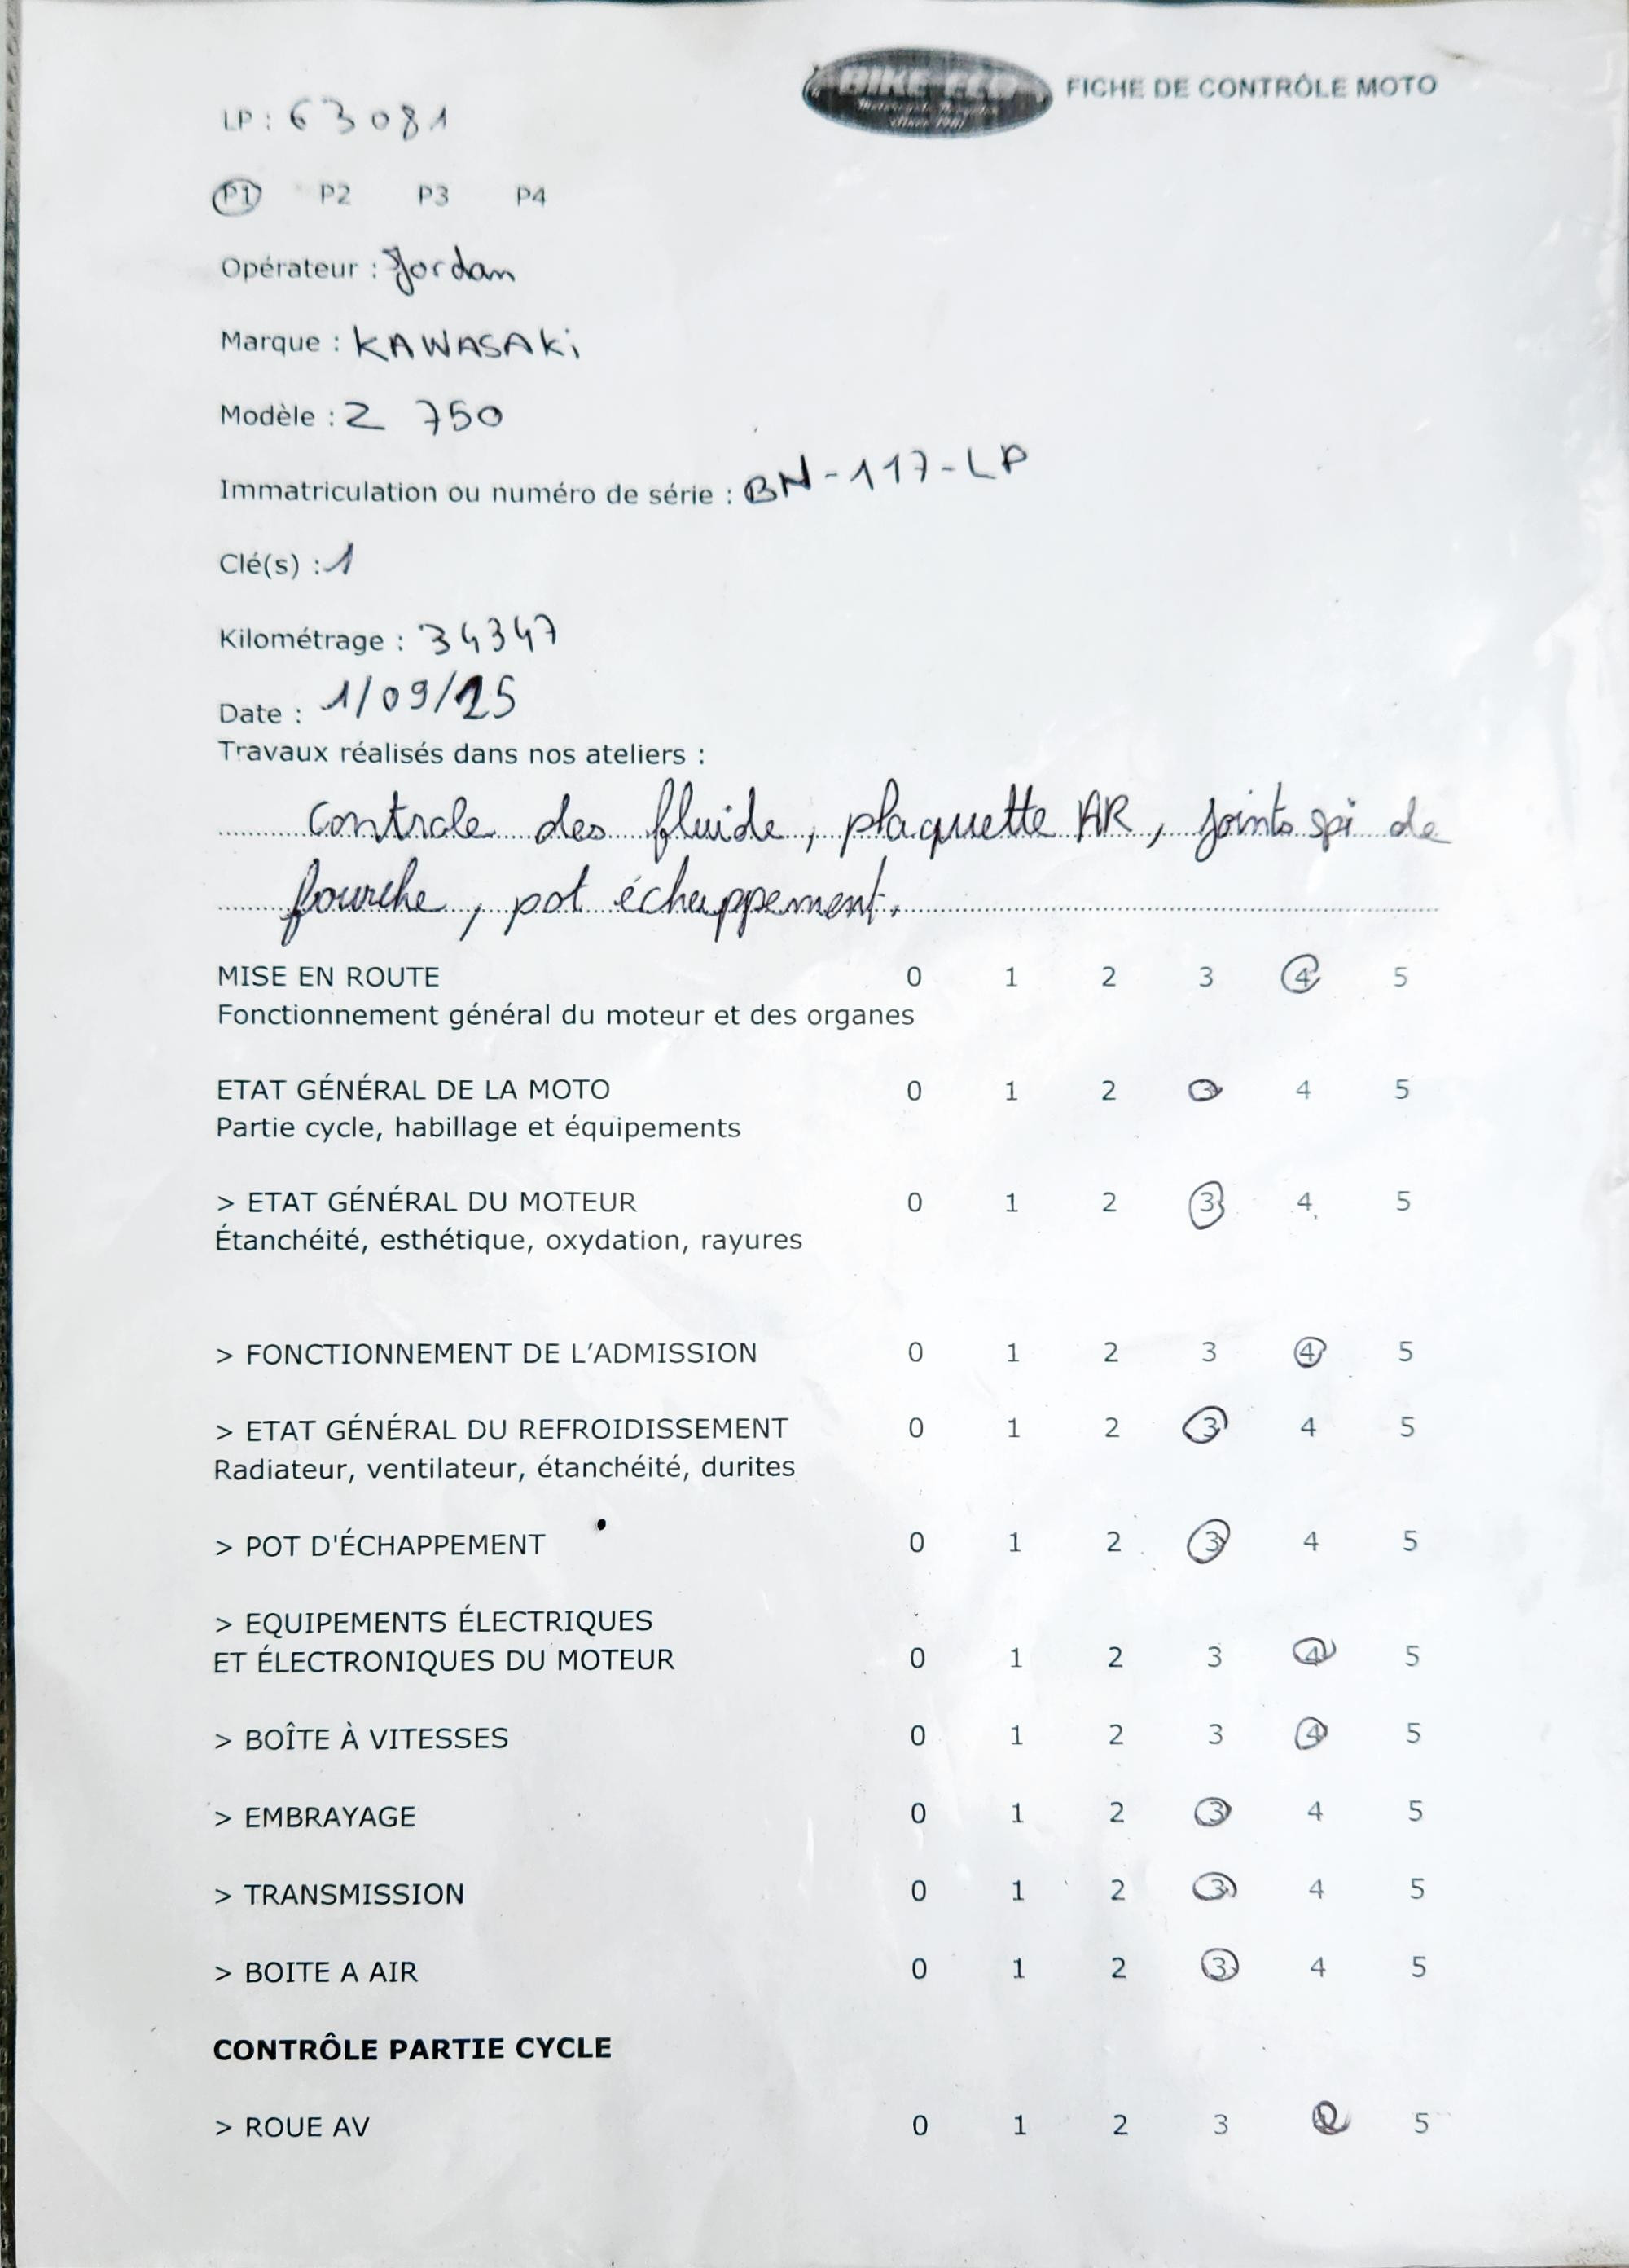 BIKE
since 1981
FICHE DE CONTRÔLE MOTO
LP : 63081
P1 P2 P3 P4
Opérateur : Jordan
Marque : KAWASAKi
Modèle : Z 750
Immatriculation ou numéro de série : BN-117-LP
Clé(s) : 1
Kilométrage : 34347
Date : 1/09/25
Travaux réalisés dans nos ateliers :
Controle des fluide, plaquette AR, joints spi de
fourche, pot échappement.
MISE EN ROUTE 0 1 2 3 4 5
Fonctionnement général du moteur et des organes
ETAT GÉNÉRAL DE LA MOTO 0 1 2 3 4 5
Partie cycle, habillage et équipements
> ETAT GÉNÉRAL DU MOTEUR 0 1 2 3 4 5
Étanchéité, esthétique, oxydation, rayures
> FONCTIONNEMENT DE L'ADMISSION 0 1 2 3 4 5
> ETAT GÉNÉRAL DU REFROIDISSEMENT 0 1 2 3 4 5
Radiateur, ventilateur, étanchéité, durites
> POT D'ÉCHAPPEMENT 0 1 2 3 4 5
> EQUIPEMENTS ÉLECTRIQUES
ET ÉLECTRONIQUES DU MOTEUR 0 1 2 3 4 5
> BOÎTE À VITESSES 0 1 2 3 4 5
> EMBRAYAGE 0 1 2 3 4 5
> TRANSMISSION 0 1 2 3 4 5
> BOITE A AIR 0 1 2 3 4 5
CONTRÔLE PARTIE CYCLE
> ROUE AV 0 1 2 3 4 5